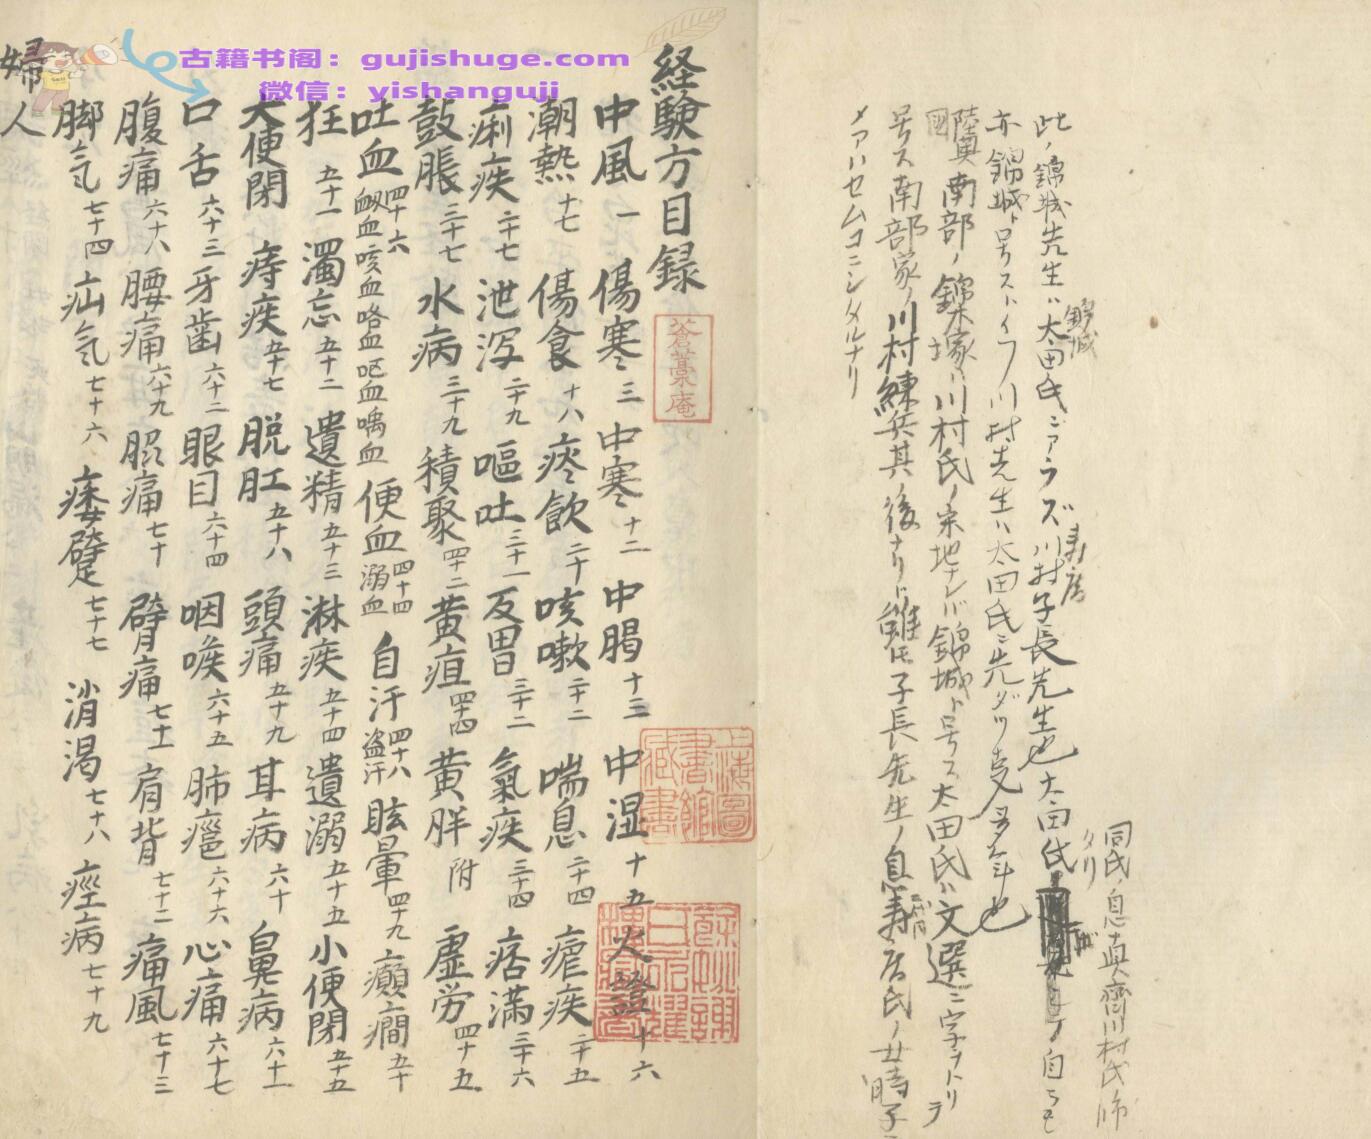 古籍书阁：gujishuge.com
微信：yishanguji
此ノ錦城先生ハ太田氏ニアラズ川村子長先生也太田氏
錦城
壽庵
同氏ノ息真齊川村氏
タリ
亦錦城ト号ストイフ川村先生ハ太田氏ニ先ダツ
陸奥國南部ノ錦塚ハ川村氏ノ宗地ナレバ錦城ト号ス太田氏ハ文選ニ字ヲトリ
号ス南部家ノ川村練兵其ノ後ナリト雖モ子長先生ノ息壽庵氏ノ
メアハセムコニシタルナリ
経験方目録
蒼藁庵
中風 一 傷寒 三 中寒 十二 中暍 十三 中湿 十五 火證 十六
潮熱 十七 傷食 十八 痰飲 二十 咳嗽 二十二 喘息 二十四 瘧疾 二十五
痢疾 二十七 泄瀉 二十九 嘔吐 三十一 反胃 三十二 氣疾 三十四 痞満 三十六
鼓脹 三十七 水病 三十九 積聚 四十二 黄疸 四十四 黄胖 附 虚労 四十五
吐血 四十六 衂血 咳血 咯血 嘔血 喎血 便血 四十四 溺血 自汗 四十八 盗汗 眩暈 四十九 癲癇 五十
狂 五十一 濁忘 五十二 遺精 五十三 淋疾 五十四 遺溺 五十五 小便閉 五十五
大便閉 痔疾 五十七 脱肛 五十八 頭痛 五十九 耳病 六十 鼻病 六十一
口舌 六十三 牙歯 六十二 眼目 六十四 咽喉 六十五 肺癰 六十六 心痛 六十七
腹痛 六十八 腰痛 六十九 脇痛 七十 臂痛 七十一 肩背 七十二 痛風 七十三
脚気 七十四 疝気 七十六 痿躄 七十七 消渇 七十八 痙病 七十九
婦人
上海圖書館藏書